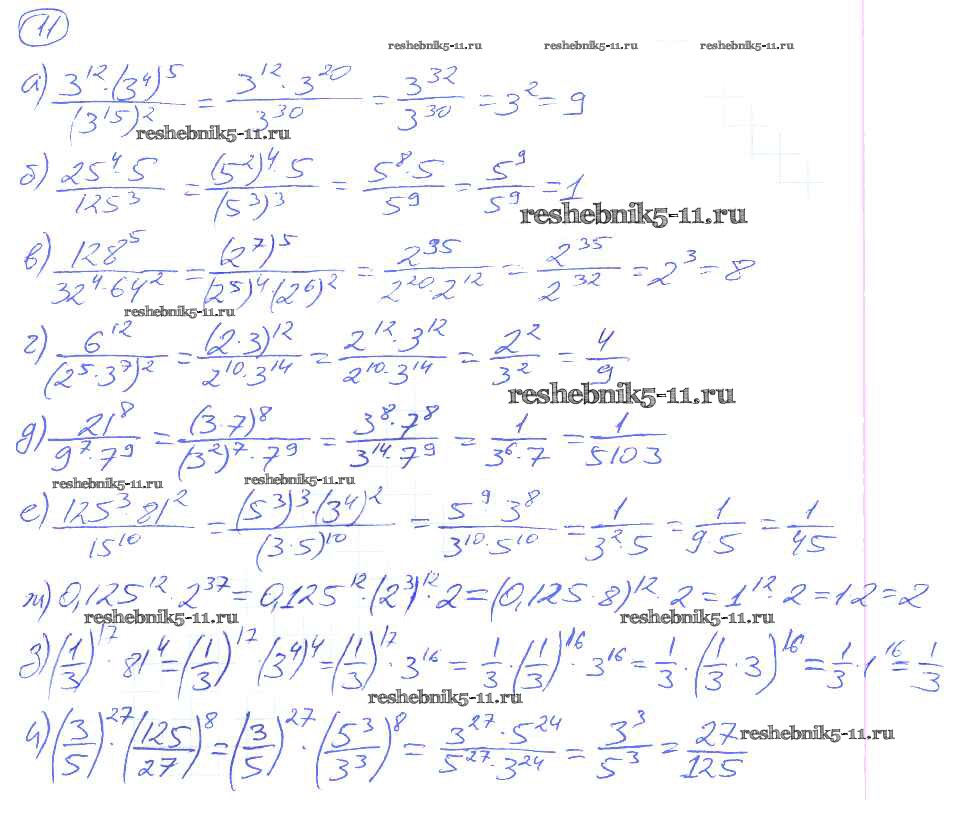 11
reshebnik5-11.ru reshebnik5-11.ru reshebnik5-11.ru
а) 3^12·(3^4)^5 / (3^15)^2 = 3^12·3^20 / 3^30 = 3^32 / 3^30 = 3^2 = 9
reshebnik5-11.ru
б) 25^4·5 / 125^3 = (5^2)^4·5 / (5^3)^3 = 5^8·5 / 5^9 = 5^9 / 5^9 = 1
reshebnik5-11.ru
в) 128^5 / 32^4·64^2 = (2^7)^5 / (2^5)^4·(2^6)^2 = 2^35 / 2^20·2^12 = 2^35 / 2^32 = 2^3 = 8
reshebnik5-11.ru
г) 6^12 / (2^5·3^7)^2 = (2·3)^12 / 2^10·3^14 = 2^12·3^12 / 2^10·3^14 = 2^2 / 3^2 = 4 / 9
reshebnik5-11.ru
д) 21^8 / 9^7·7^9 = (3·7)^8 / (3^2)^7·7^9 = 3^8·7^8 / 3^14·7^9 = 1 / 3^6·7 = 1 / 5103
reshebnik5-11.ru reshebnik5-11.ru
е) 125^3·81^2 / 15^10 = (5^3)^3·(3^4)^2 / (3·5)^10 = 5^9·3^8 / 3^10·5^10 = 1 / 3^2·5 = 1 / 9·5 = 1 / 45
ж) 0,125^12·2^37 = 0,125^12·(2^3)^12·2 = (0,125·8)^12·2 = 1^12·2 = 1·2 = 2
reshebnik5-11.ru reshebnik5-11.ru
з) (1/3)^17·81^4 = (1/3)^17·(3^4)^4 = (1/3)^17·3^16 = 1/3·(1/3)^16·3^16 = 1/3·(1/3·3)^16 = 1/3·1^16 = 1/3
reshebnik5-11.ru
и) (3/5)^27·(125/27)^8 = (3/5)^27·(5^3/3^3)^8 = 3^27·5^24 / 5^27·3^24 = 3^3 / 5^3 = 27 / 125
reshebnik5-11.ru